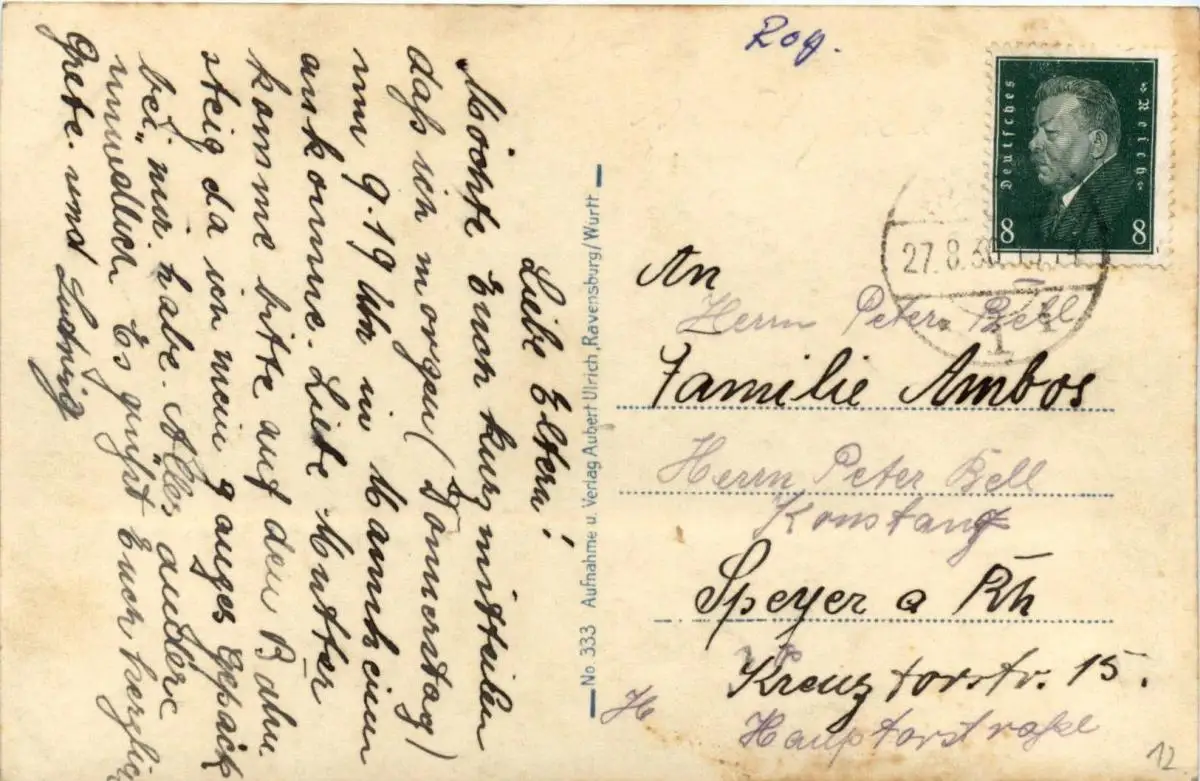 Liebe Eltern!
Möchte Euch kurz mitteilen
daß ich morgen (Donnerstag)
um 9.19 Uhr in Mannheim
ankomme. Liebe Mutter
komme bitte auf den Bahn
steig da ich mein ganzes Gepäck
bei mir habe. Alles andere
mündlich Es grüßt Euch herzlich
Grete. und Ludwig
No. 333 Aufnahme u. Verlag Aubert Ulrich, Ravensburg/Württ
Rog.
Deutsches
«Reich»
8 8
27.8.30
1
An
Herrn Peter Bell
Familie Ambos
Herrn Peter Bell
Konstanz
Speyer a Rh
Kreuztorstr. 15.
H
Hauptorstraße
12